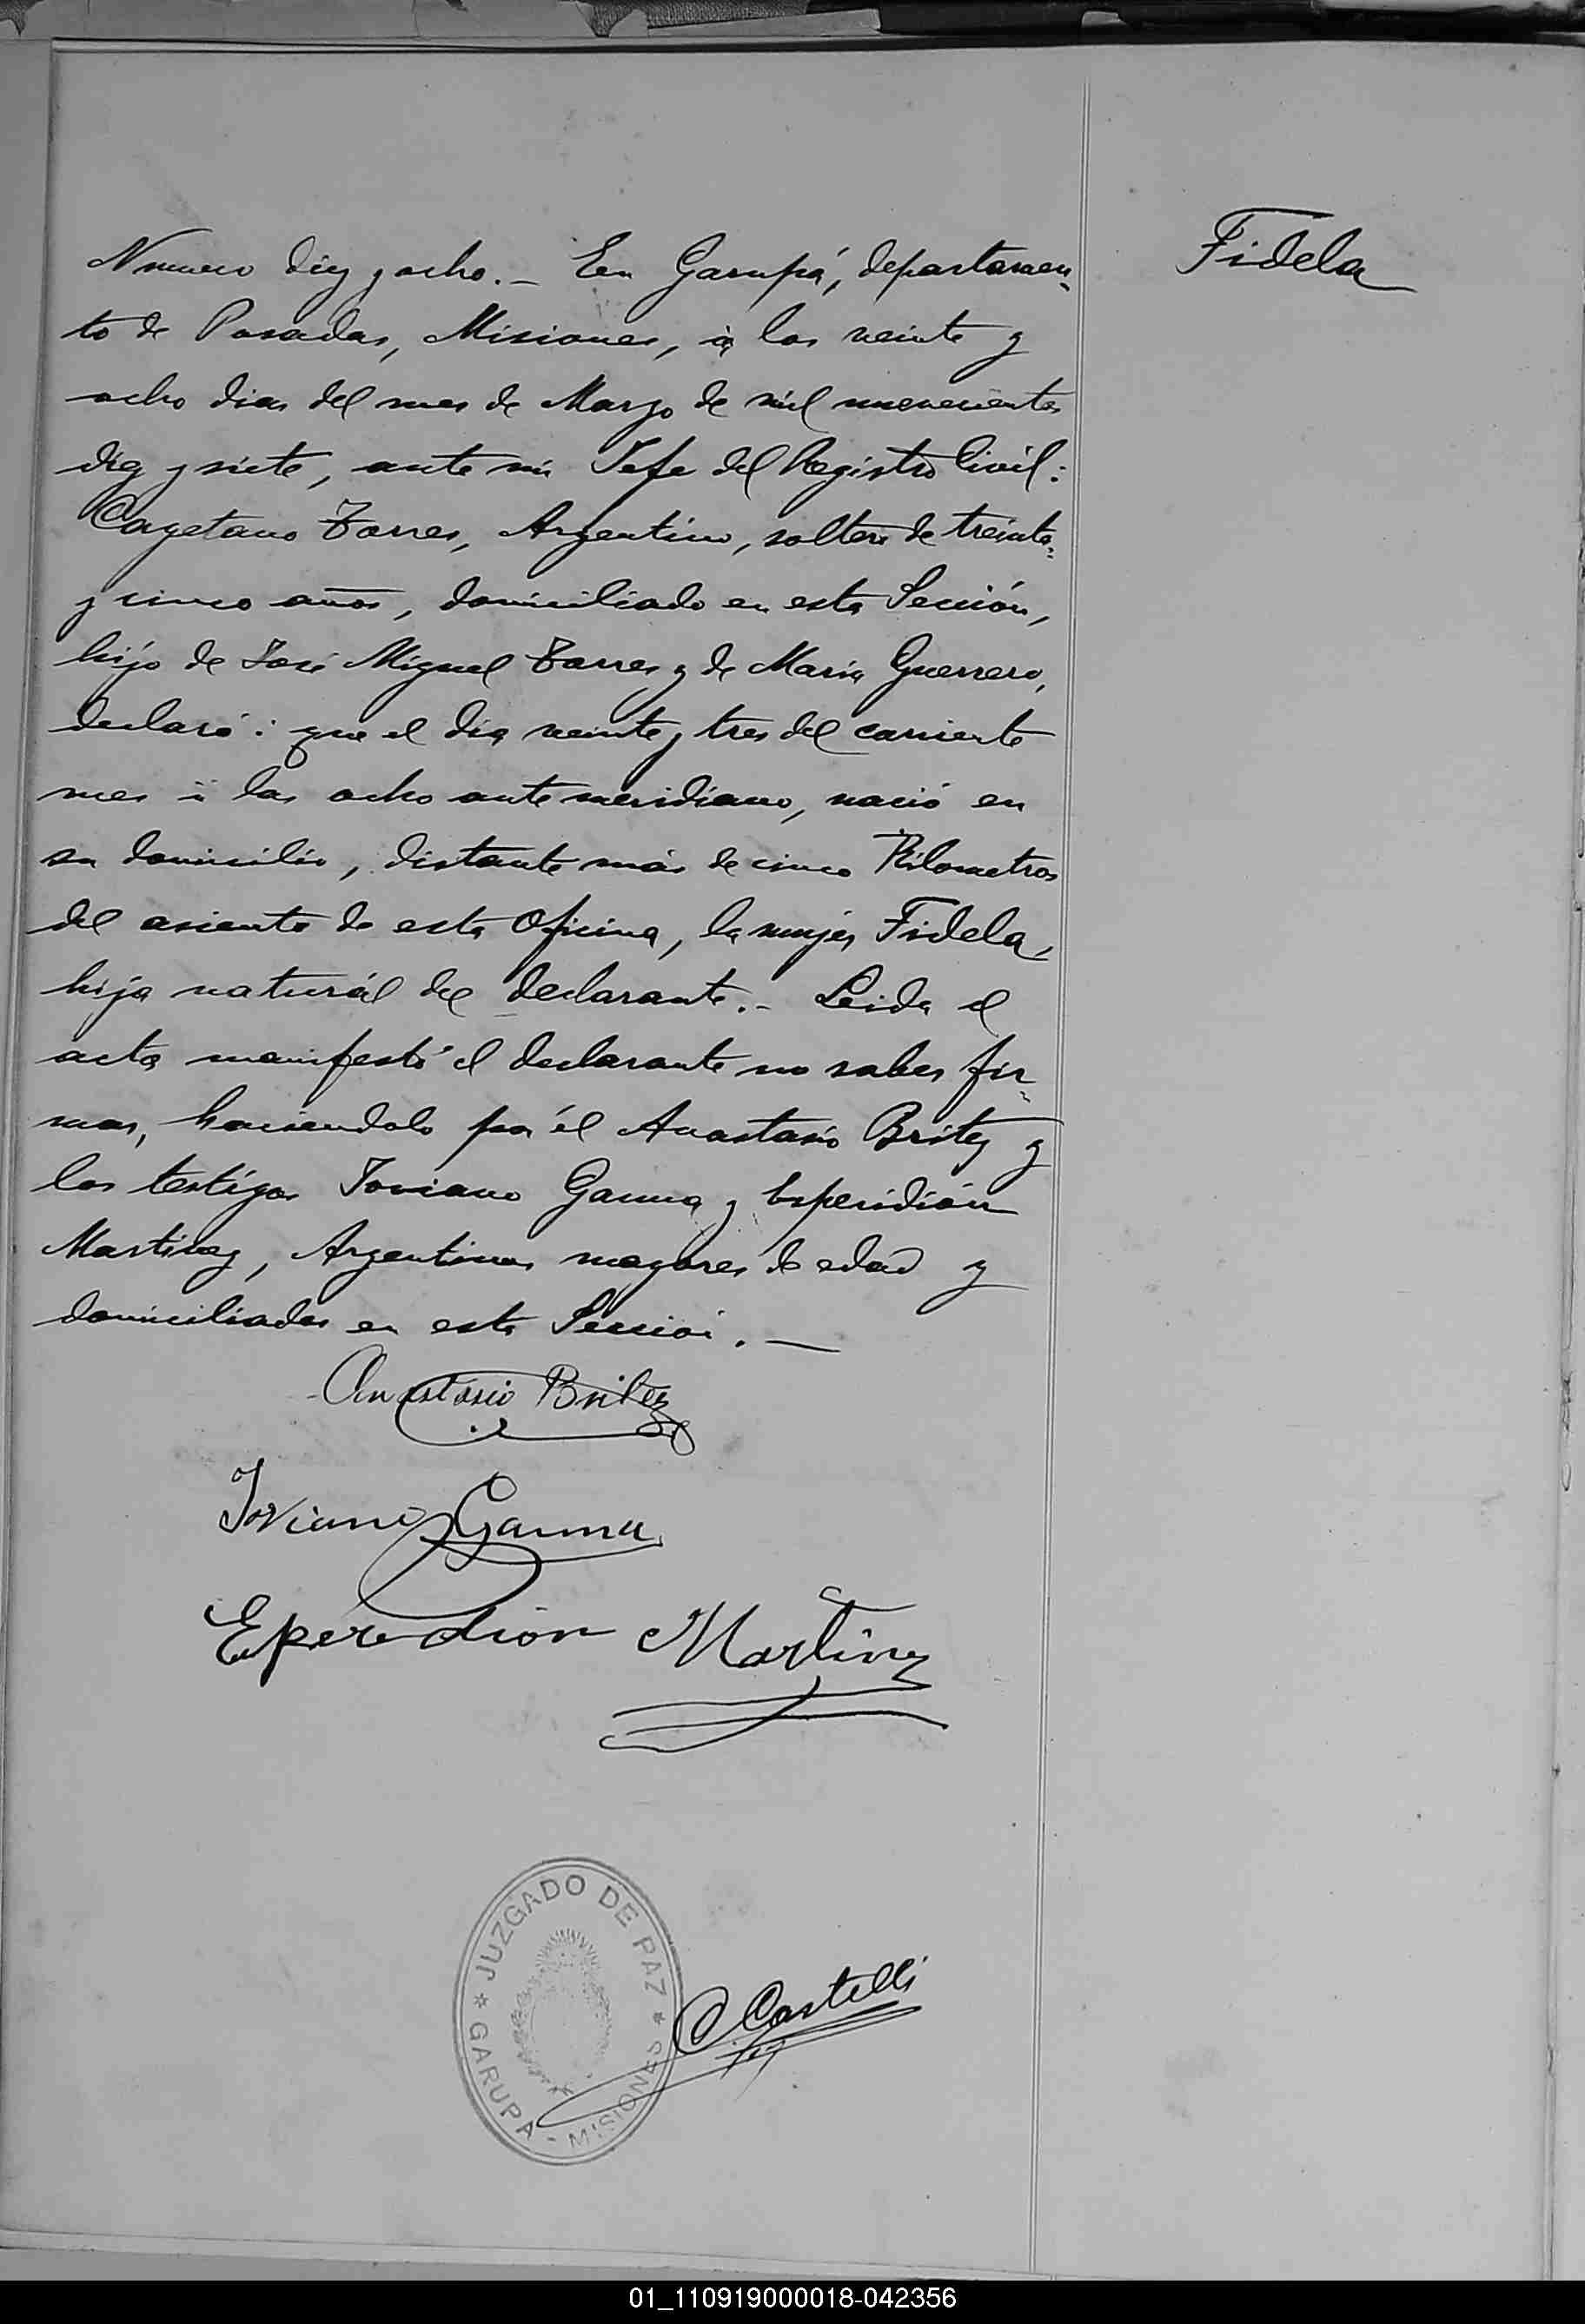 Fidela
Numero diez y ocho. _ En Garupá, departamen-
to de Posadas, Misiones, á los veinte y
ocho dias del mes de Marzo de mil novecientos
diez y siete, ante mi Jefe del Registro Civil:
Cayetano Torres, Argentino, soltero de treinta
y cinco años, domiciliado en esta Sección,
hijo de José Miguel Torres y de Maria Guerrero,
declaró: que el dia veinte y tres del corriente
mes á las ocho ante meridiano, nació en
su domicilio, distante más de cinco Kilometros
del asiento de esta Oficina, la mujer Fidela,
hija naturál del declarante. _ Leida el
acta manifestó el declarante no saber fir-
mar, haciendolo por él Anastasio Britez y
los testigos Joviano Gauna y Esperidión
Martinez, Argentinos mayores de edad y
domiciliados en esta Sección. _
Anastasio Britez
Joviano Gauna
Eperedion Martinez
JUZGADO DE PAZ
* GARUPÁ - MISIONES *
C Castelli
01_110919000018-042356